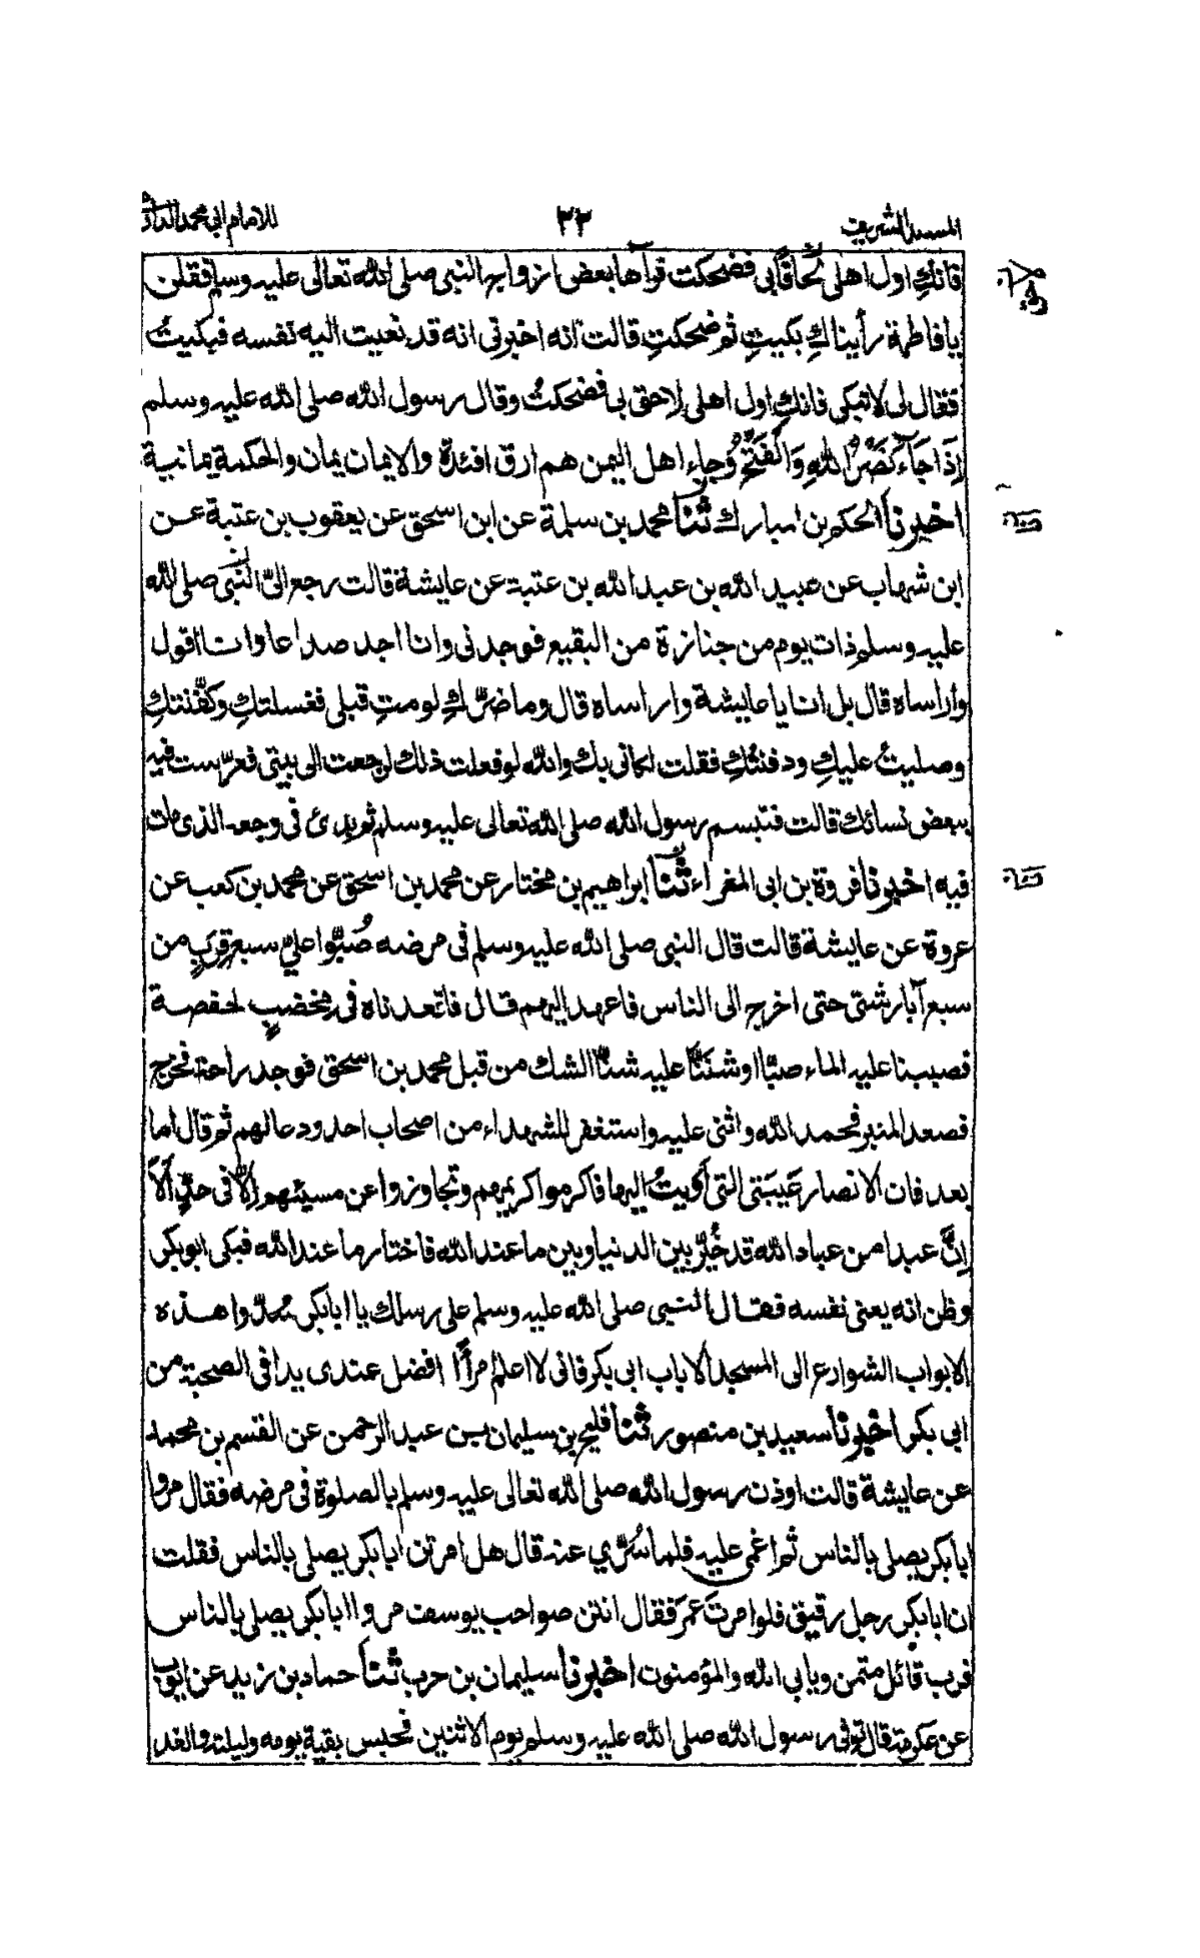 المسند الشريف ٣٢ للامام ابي محمد الدارمي
فانكِ اول اهلى لَحَاقًا بى فضحكت فرآها بعض ازواج النبى صلى الله تعالى عليه وسلم فقلن
يا فاطمة رأيناكِ بكيتِ ثم ضحكتِ قالت انه اخبرنى انه قد نعيت اليه نفسه فبكيتُ
فقال لى لا تبكى فانكِ اول اهلى لاحق بى فضحكتُ وقال رسول الله صلى الله عليه وسلم
إِذَا جَآءَ نَصْرُ اللهِ وَالْفَتْحُ وجاء اهل اليمن هم ارق افئدة والايمان يمان والحكمة يمانية
اخبرنا الحكم بن المبارك ثنا محمد بن سلمة عن ابن اسحق عن يعقوب بن عتبة عن
ابن شهاب عن عبيد الله بن عبد الله بن عتبة عن عايشة قالت رجع الىّ النبى صلى الله
عليه وسلم ذات يوم من جنازة من البقيع فوجدنى وانا اجد صداعا وانا اقول
وارأساه قال بل انا يا عايشة وارأساه قال وما ضرّكِ لو متِ قبلى فغسلتكِ وكفّنتكِ
وصليتُ عليكِ ودفنتكِ فقلت لكانى بك والله لو فعلت ذلك لرجعت الى بيتى فعرّست فيه
ببعض نسائك قالت فتبسم رسول الله صلى الله تعالى عليه وسلم ثم بدئ فى وجعه الذى مات
فيه اخبرنا فروة بن ابى المغراء ثنا ابراهيم بن مختار عن محمد بن اسحق عن محمد بن كعب عن
عروة عن عايشة قالت قال النبى صلى الله عليه وسلم فى مرضه صُبّوا علىّ سبع قِرَبٍ من
سبع آبار شتى حتى اخرج الى الناس فاعهد اليهم قال فاقعدناه فى مخضبٍ لحفصة
فصببنا عليه الماء صبّا او شننّا عليه شنّا الشك من قبل محمد بن اسحق فوجد راحة فخرج
فصعد المنبر فحمد الله واثنى عليه واستغفر للشهداء من اصحاب احد ودعا لهم ثم قال اما
بعد فان الانصار عَيبَتى التى أويتُ اليها فاكرموا كريمهم وتجاوزوا عن مسيئهم إلّا فى حدٍّ ألا
اِنَّ عبدا من عباد الله قد خُيّر بين الدنيا وبين ما عند الله فاختار ما عند الله فبكى ابو بكر
وظن انه يعنى نفسه فقال النبى صلى الله عليه وسلم على رسلك يا ابا بكر سُدّوا هذه
الابواب الشوارع الى المسجد الا باب ابى بكر فانى لا اعلم امرأً افضل عندى يدا فى الصحبة من
ابى بكر اخبرنا سعيد بن منصور ثنا فليح بن سليمان عن عبد الرحمن عن القسم بن محمد
عن عايشة قالت اوذن رسول الله صلى الله تعالى عليه وسلم بالصلوة فى مرضه فقال مروا
ابا بكر يصلى بالناس ثم اغمى عليه فلما سُرّي عنه قال هل امرتن ابا بكر يصلى بالناس فقلت
ان ابا بكر رجل رقيق فلو امرتَ عمَرَ فقال انتن صواحب يوسف مروا ابا بكر يصلى بالناس
فرب قائل متمن ويابى الله والمؤمنون اخبرنا سليمان بن حرب ثنا حماد بن زيد عن ايوب
عن عكرمة قال توفى رسول الله صلى الله عليه وسلم يوم الاثنين فحبس بقية يومه وليلته والغد